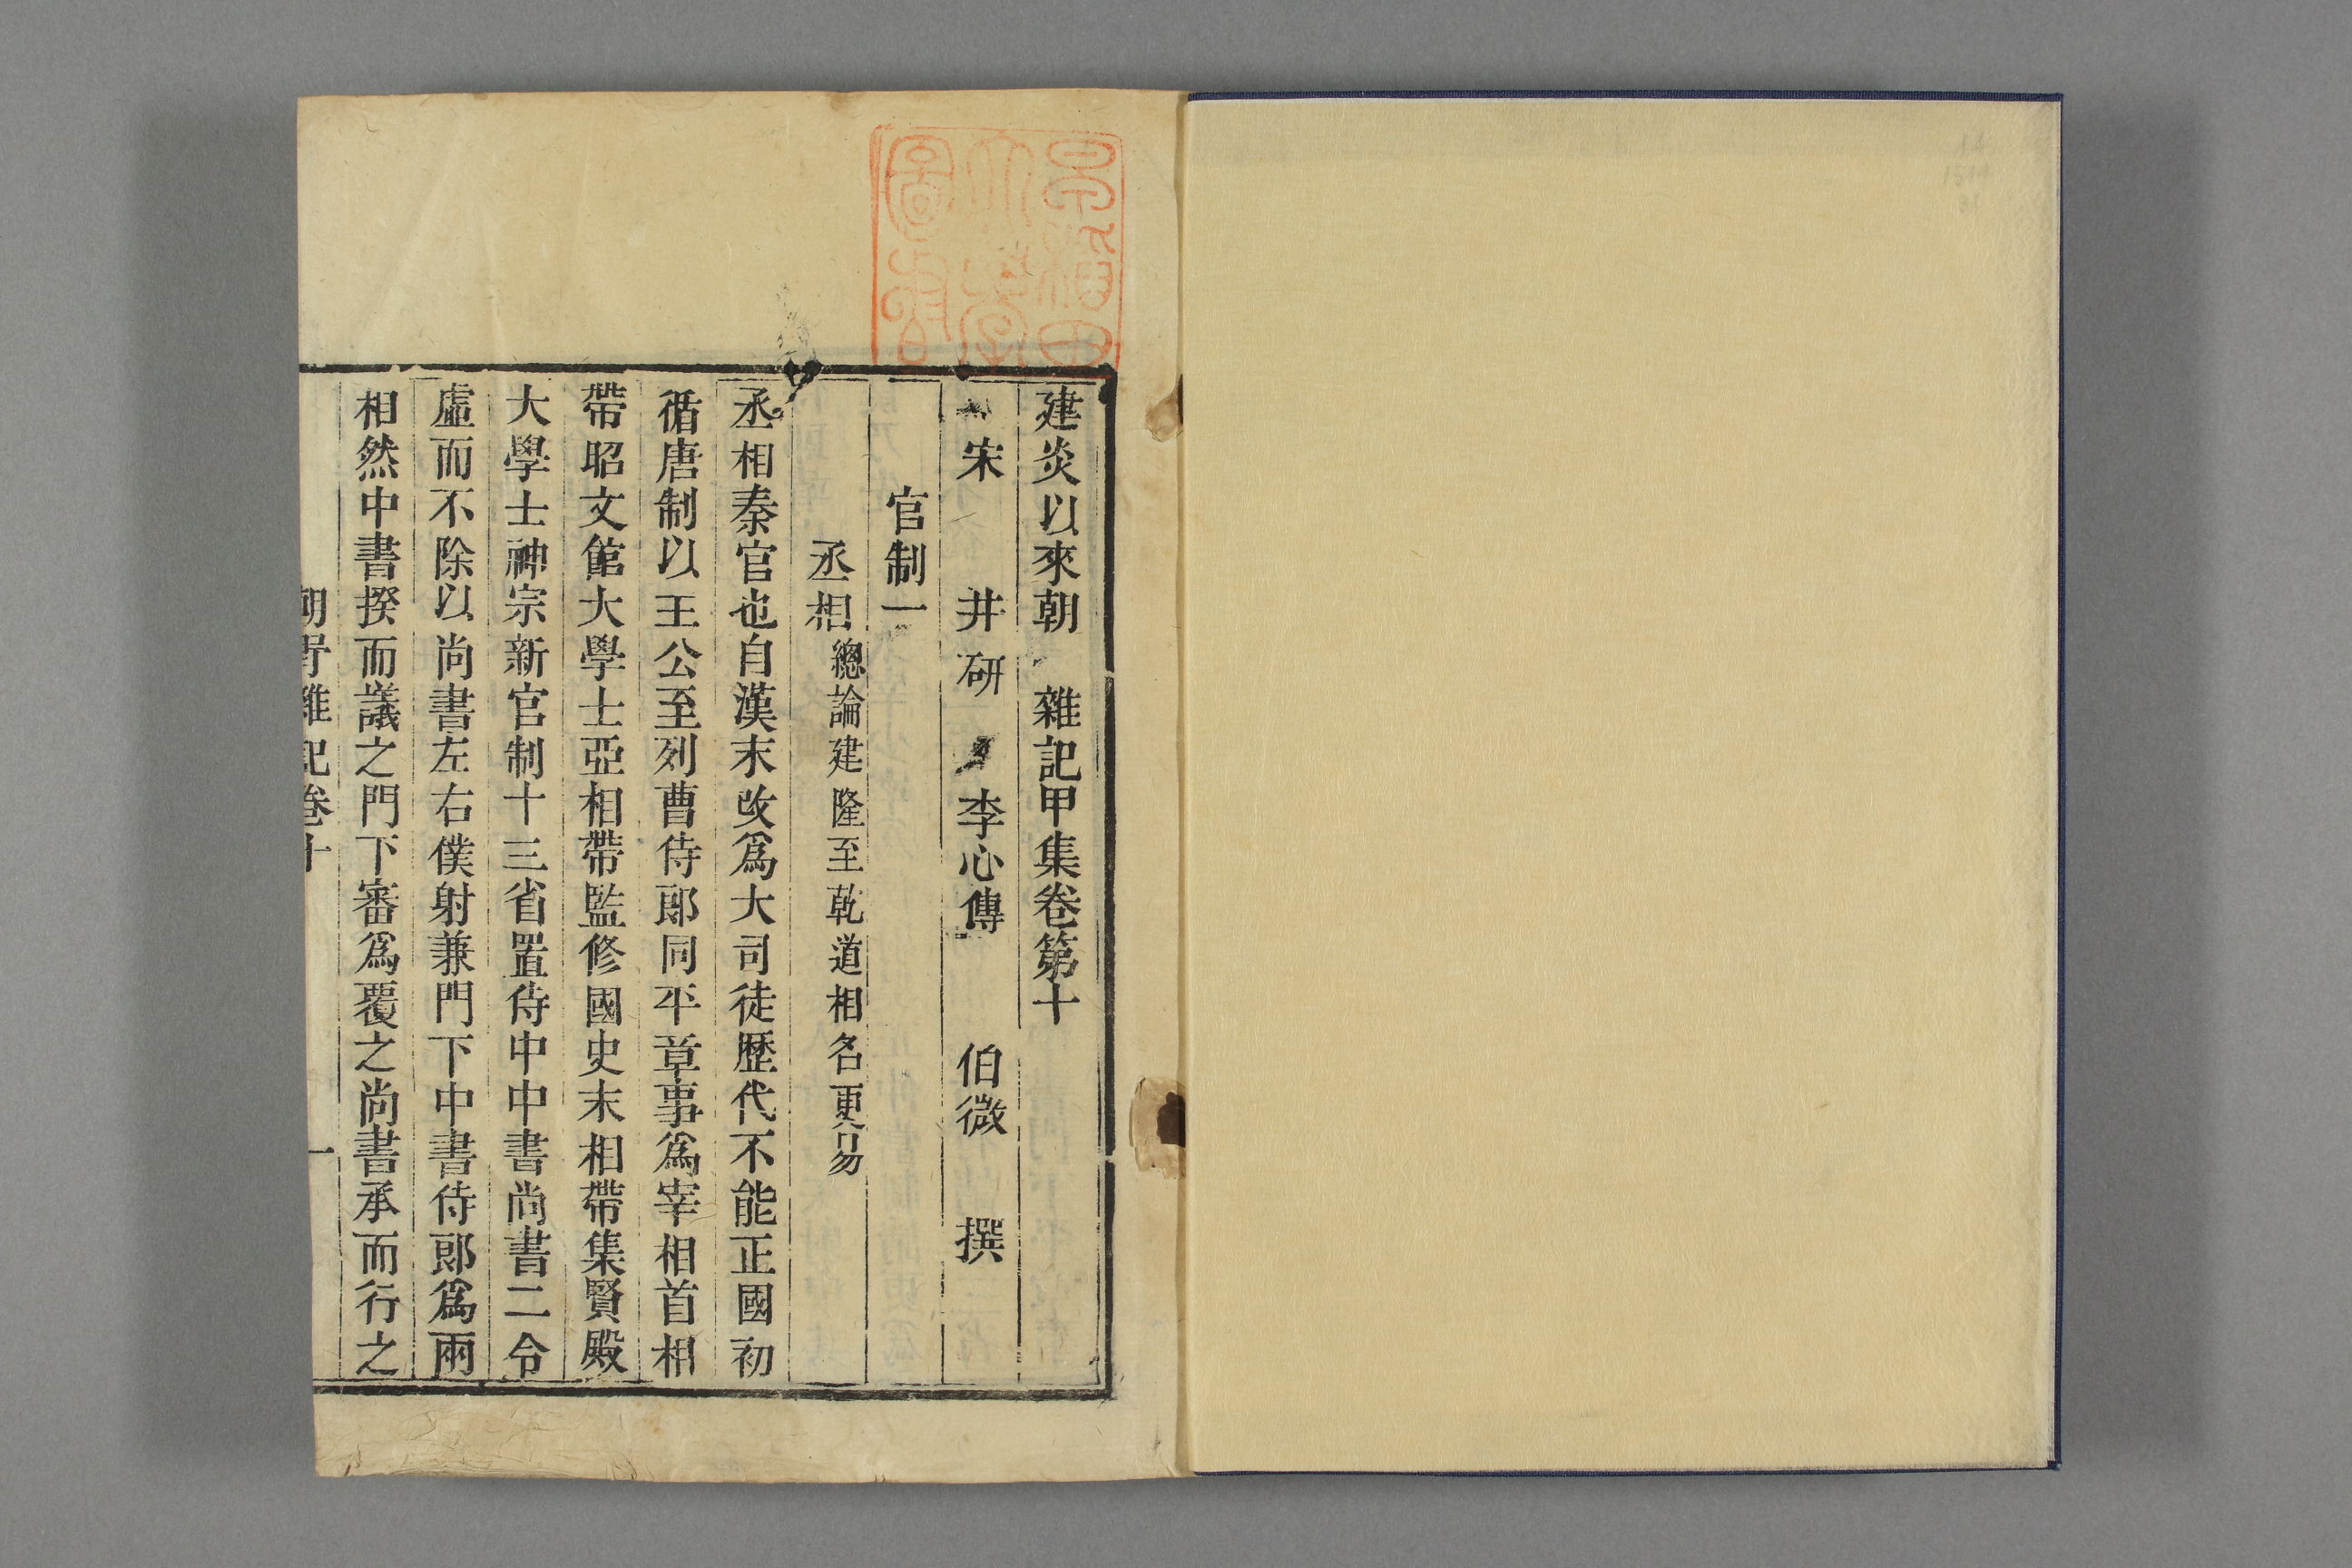 建炎以來朝 雜記甲集卷第十
宋 井研 李心傳 伯微 撰
官制一
丞相總論建隆至乾道相名更易
丞相秦官也自漢末改爲大司徒歷代不能正國初
循唐制以王公至列曹侍郞同平章事爲宰相首相
帶昭文館大學士亞相帶監修國史末相帶集賢殿
大學士神宗新官制十三省置侍中中書尚書二令
虛而不除以尚書左右僕射兼門下中書侍郞爲兩
相然中書揆而議之門下審爲覆之尚書承而行之
朝野雜記卷十 一
早稲田大學圖書